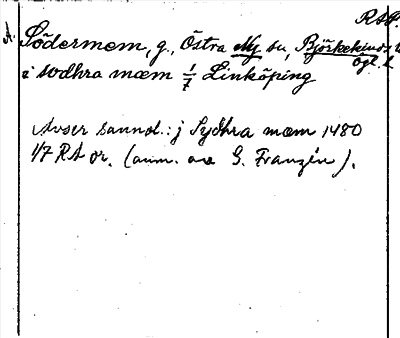 RAP.
A. Södermem, g., Östra Ny sn, Björkekinds h
Ögl. l.
i sodhra mæm 1/7 Linköping
Avser sannol.: j Sydhra mæm 1480
1/7 RA or. (anm. av G. Franzén).